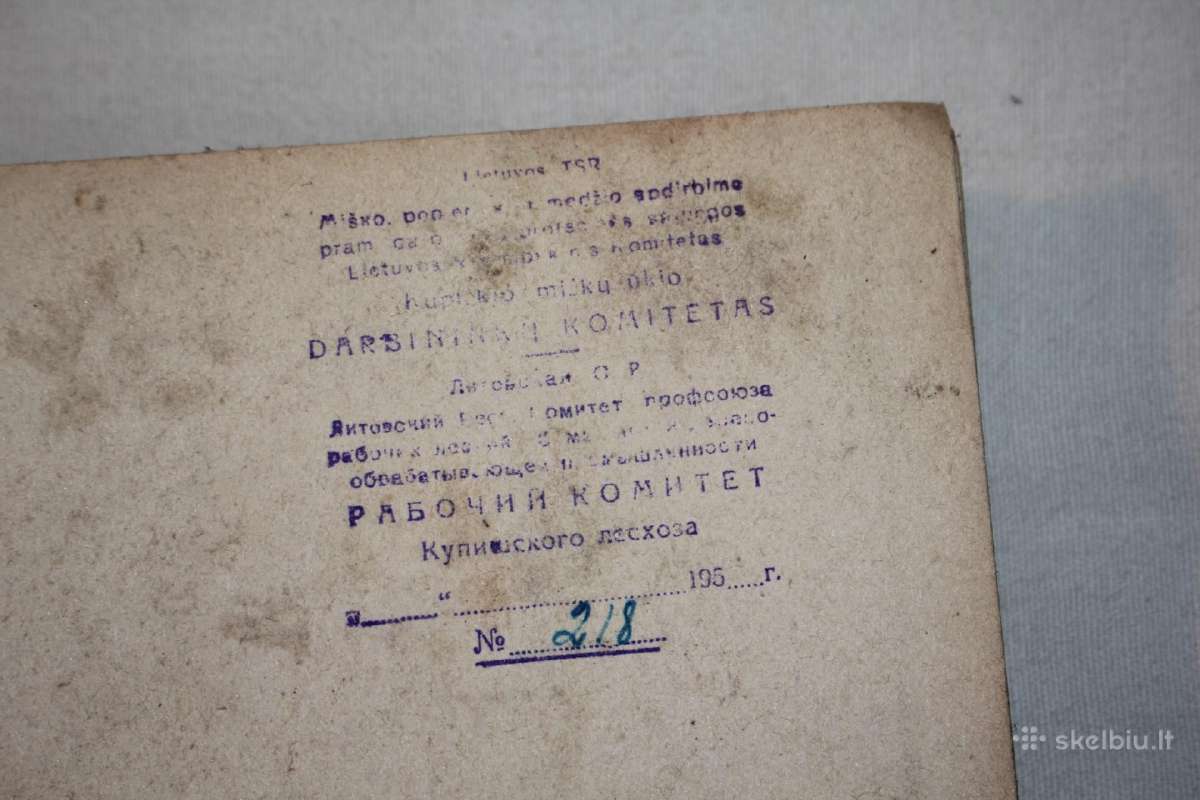 Lietuvos TSR
Miško, medžio apdirbimo
pram
Lietuvos Komitetas
Kupiškio miškų ūkio
DARBININKŲ KOMITETAS
Литовская
Литовский Комитет профсоюза
рабочих
обрабатывающей промышленности
РАБОЧИЙ КОМИТЕТ
Купишского лесхоза
„ “ 195 г.
№ 218
skelbiu.lt